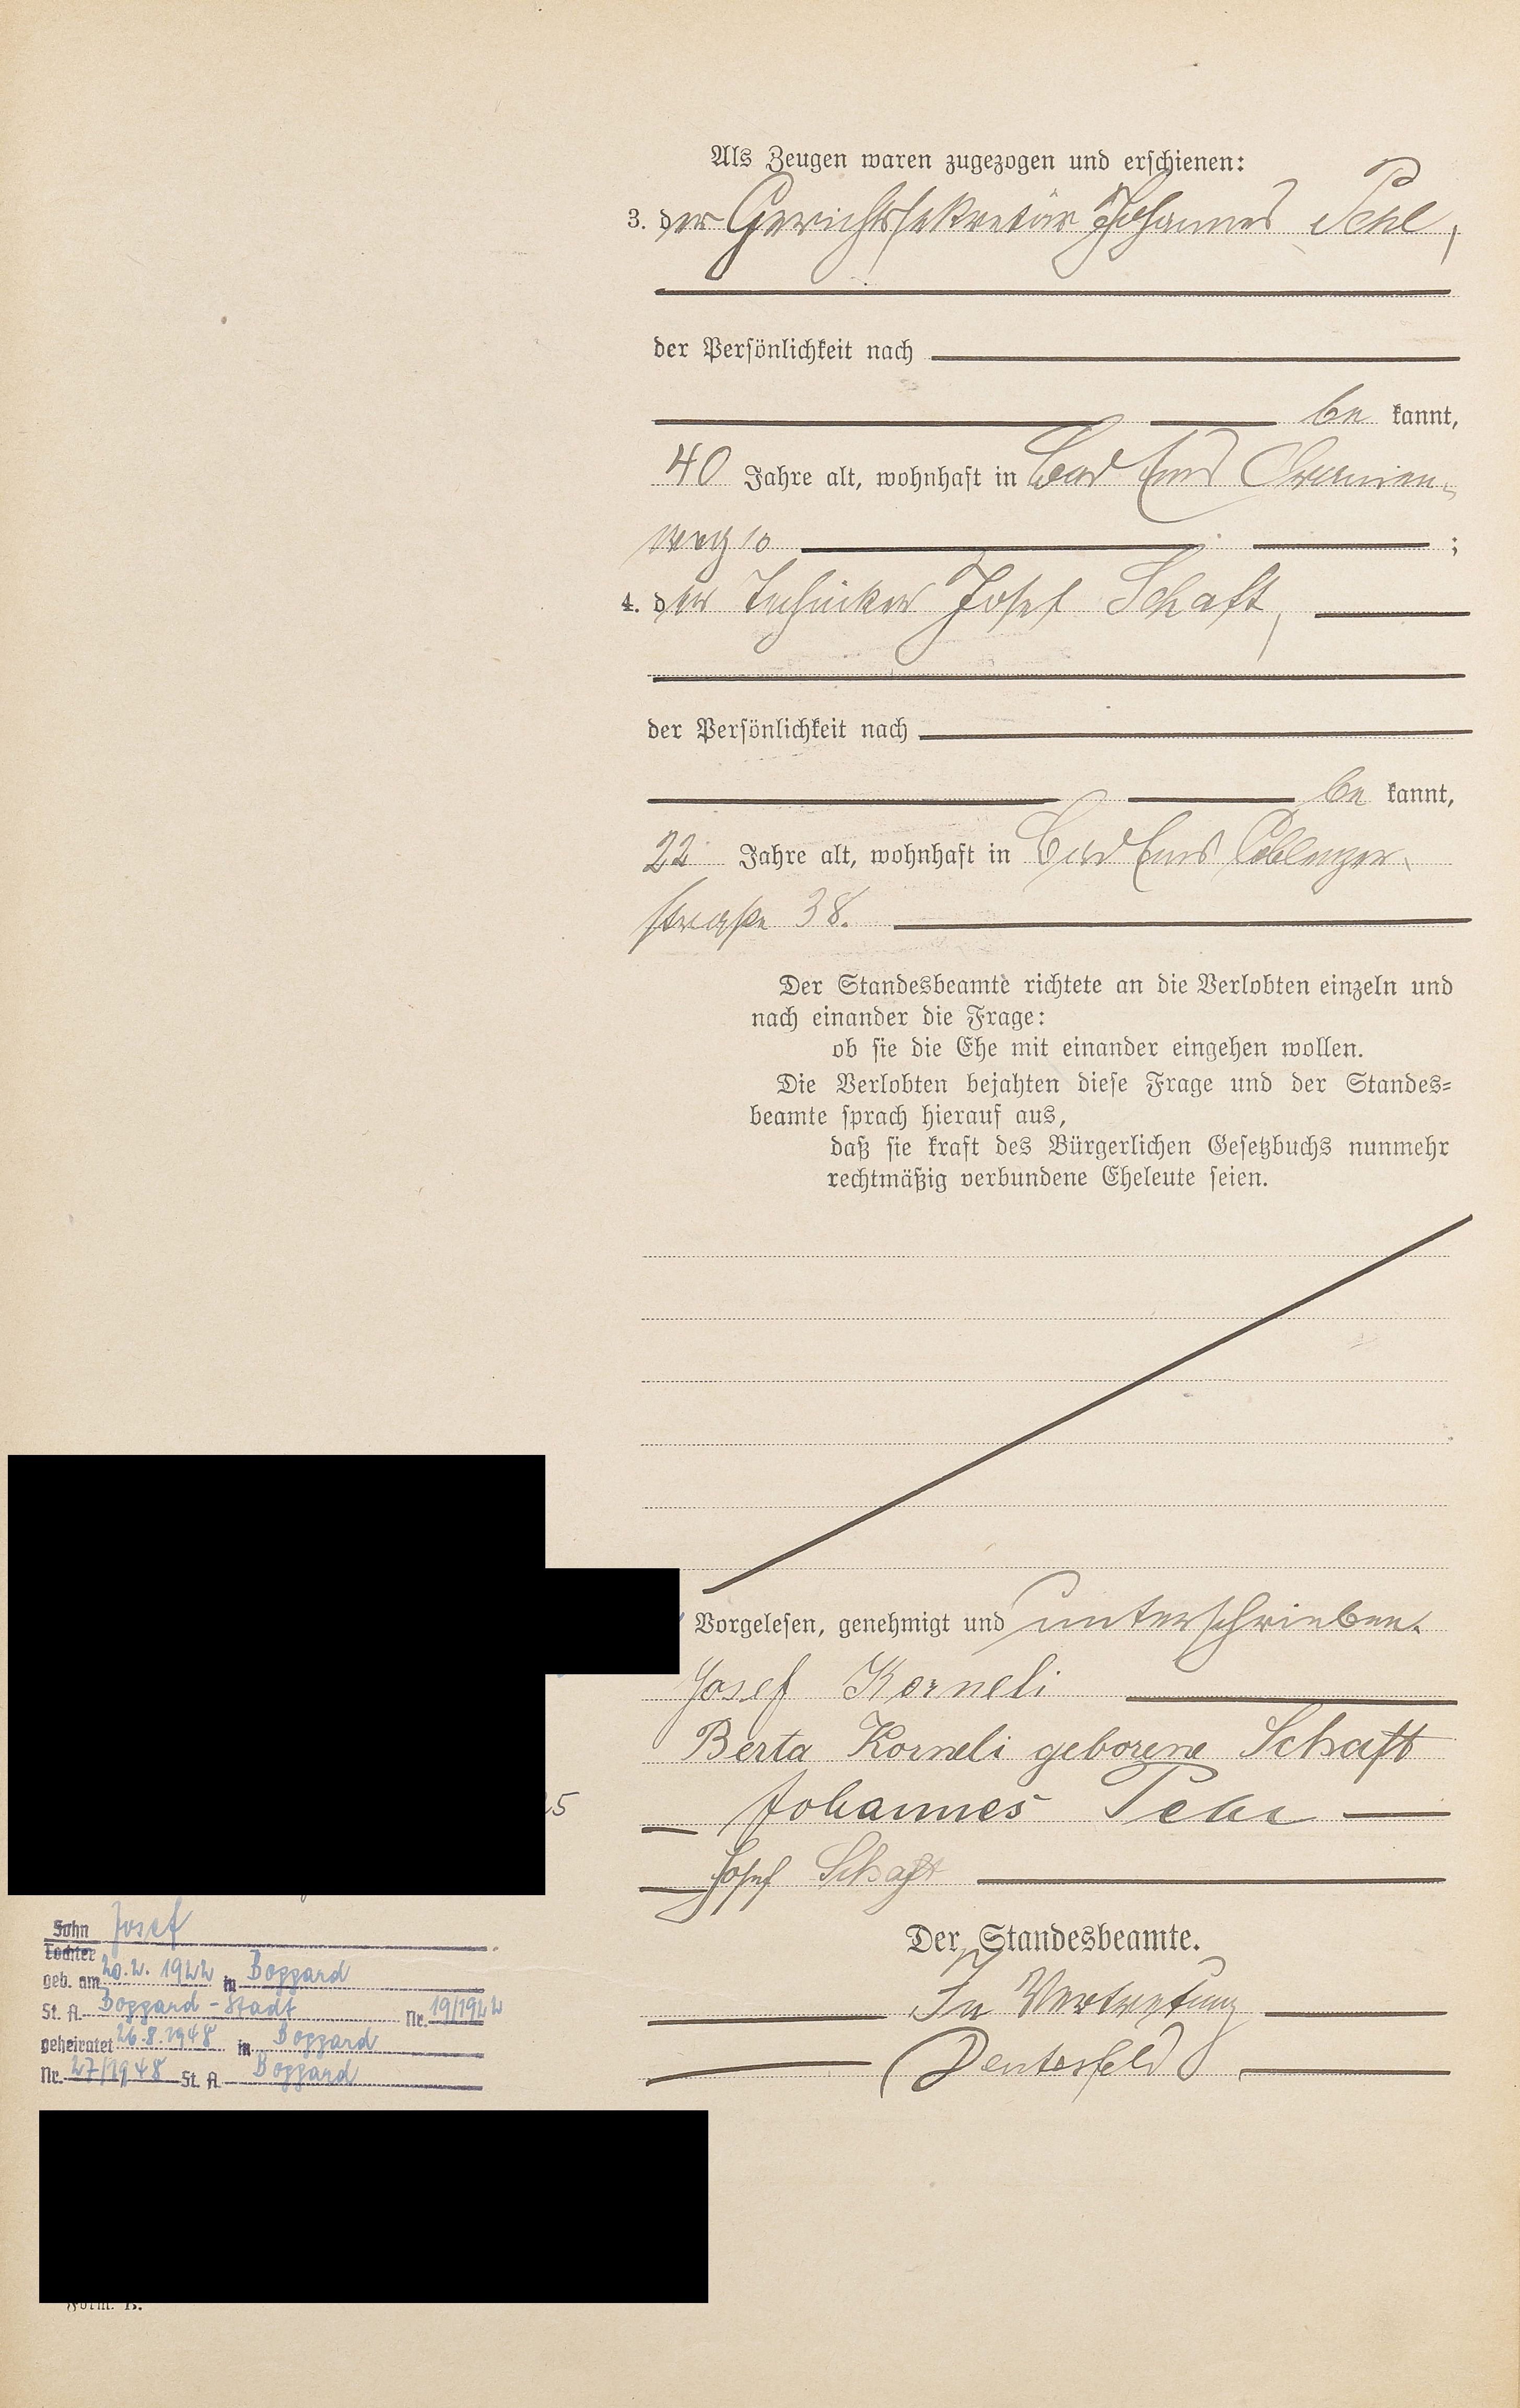 Als Zeugen waren zugezogen und erschienen:
3. der Gerichtssekretär Johannes Pehl,
der Persönlichkeit nach
be kannt,
40 Jahre alt, wohnhaft in Bad Ems Oranien-
weg 10 ;
4. der Techniker Josef Schaft,
der Persönlichkeit nach
be kannt,
22 Jahre alt, wohnhaft in Bad Ems Coblenzer-
straße 38.
Der Standesbeamte richtete an die Verlobten einzeln und
nach einander die Frage:
ob sie die Ehe mit einander eingehen wollen.
Die Verlobten bejahten diese Frage und der Standes-
beamte sprach hierauf aus,
daß sie kraft des Bürgerlichen Gesetzbuchs nunmehr
rechtmäßig verbundene Eheleute seien.
Vorgelesen, genehmigt und unterschrieben.
Josef Korneli
Berta Korneli geborene Schaft
Johannes Pehl
Josef Schaft
Der Standesbeamte.
In Vertretung
Sohn Josef
Tochter
geb. am 20.2.1922 in Boppard
St. A. Boppard-Stadt Nr. 19/1922
geheiratet 26.8.1948 in Boppard
Nr. 27/1948 St. A. Boppard
Form. B.